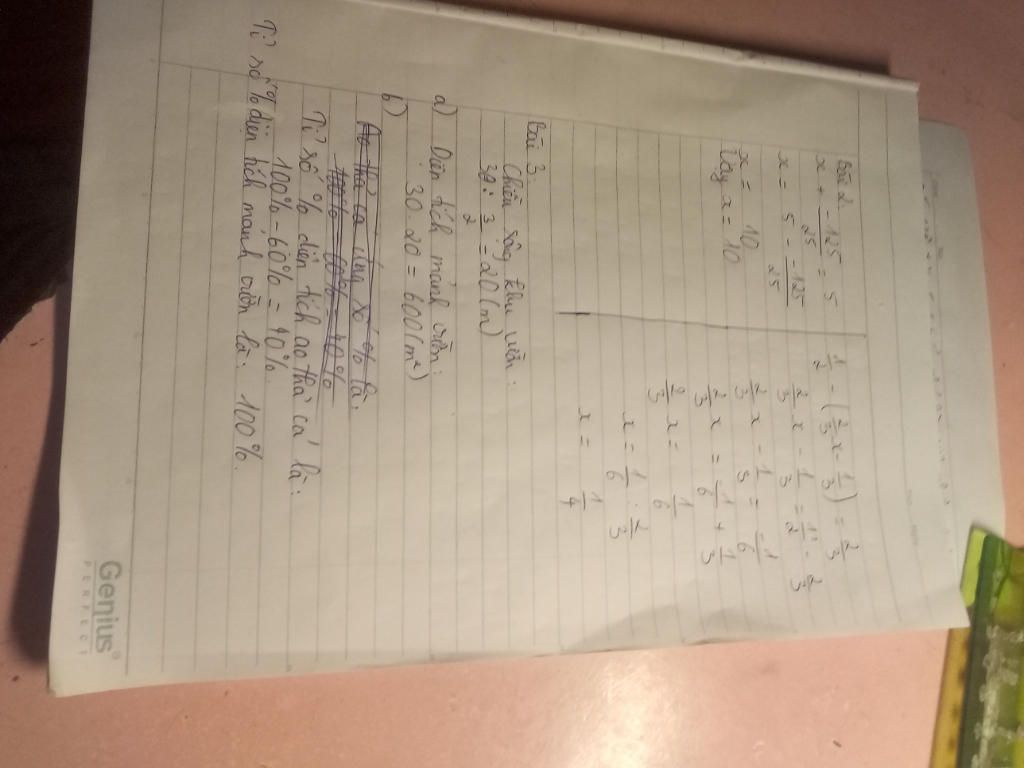 Bài 2
x + -125/25 = 5
x = 5 - -125/25
x = 10
Vậy x = 10
1/2 - (2/3x - 1/3) = 2/3
2/3x - 1/3 = 1/2 - 2/3
2/3x - 1/3 = -1/6
2/3x = -1/6 + 1/3
2/3x = 1/6
x = 1/6 : 2/3
x = 1/4
Bài 3.
Chiều rộng khu vườn:
30 : 3/2 = 20 (m)
a) Diện tích mảnh vườn:
30 . 20 = 600 (m²)
b)
Ao thả cá chiếm số % là:
100% - 60% = 40%
Tỉ số % diện tích ao thả cá là:
100% - 60% = 40%
Tỉ số % diện tích mảnh vườn là: 100%.
Genius®
PERFECT